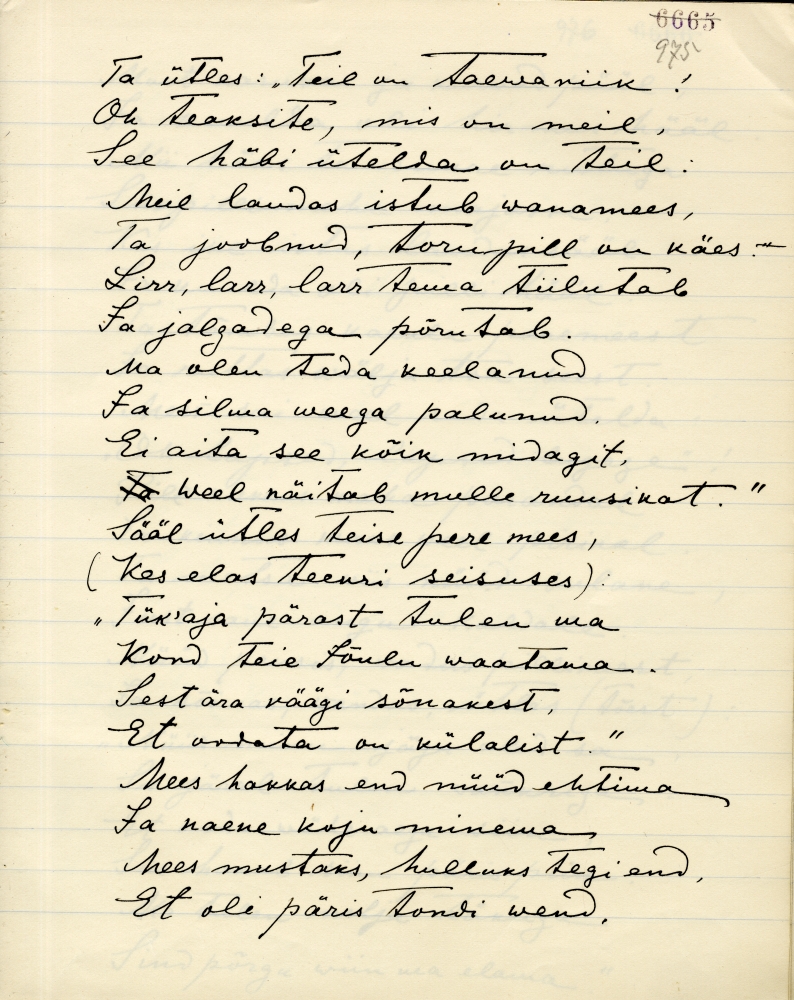 6665
975
Ta ütles: „Teil on taewariik!
Oh teaksite, mis on meil,
See häbi ütelda on teil:
Meil laudas istub wanamees,
Ta joobnud, torupill on käes."
Lirr, larr, larr tema tiilutab
Ja jalgadega põrutab.
Ma olen teda keelanud
Ja silma weega palunud.
Ei aita see kõik midagit,
Ta weel näitab mulle ruusikat."
Sääl ütles teise pere mees,
(Kes elas teenri seisuses):
„Tük'aja pärast tulen ma
Kord teie Jõulu waatama.
Sest ära räägi sõnakest,
Et oodata on külalist."
Mees hakkas end nüüd ehtima
Ja naene koju minema
Mees mustaks, hulluks tegi end,
Et oli päris tondi wend.